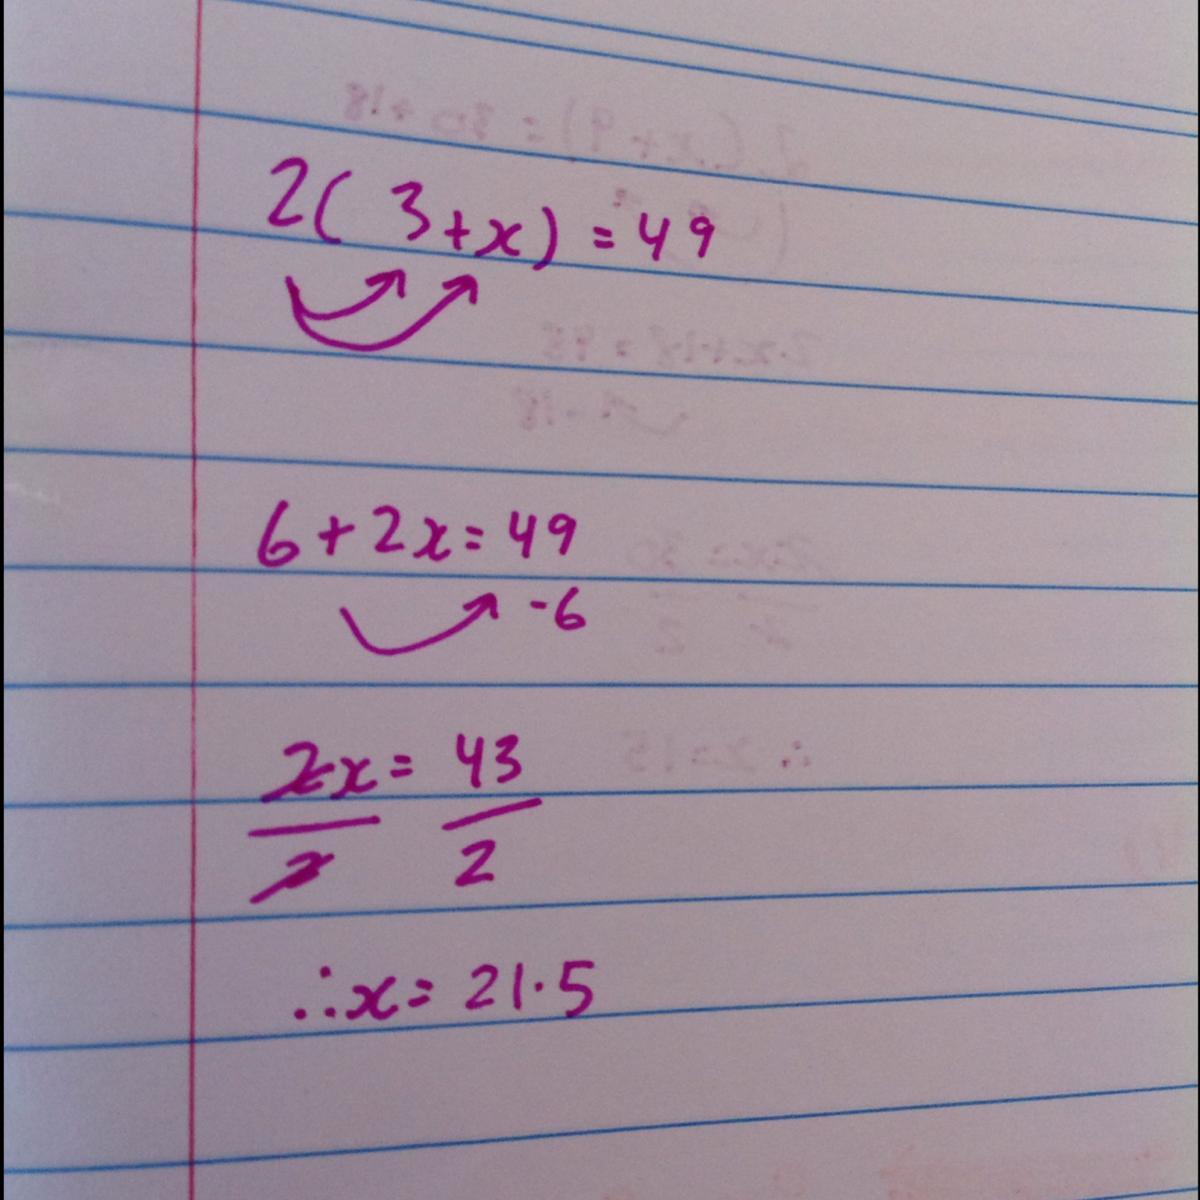 2( 3+x) = 49
6+2x= 49
-6
2x= 43
2 2
∴x= 21.5